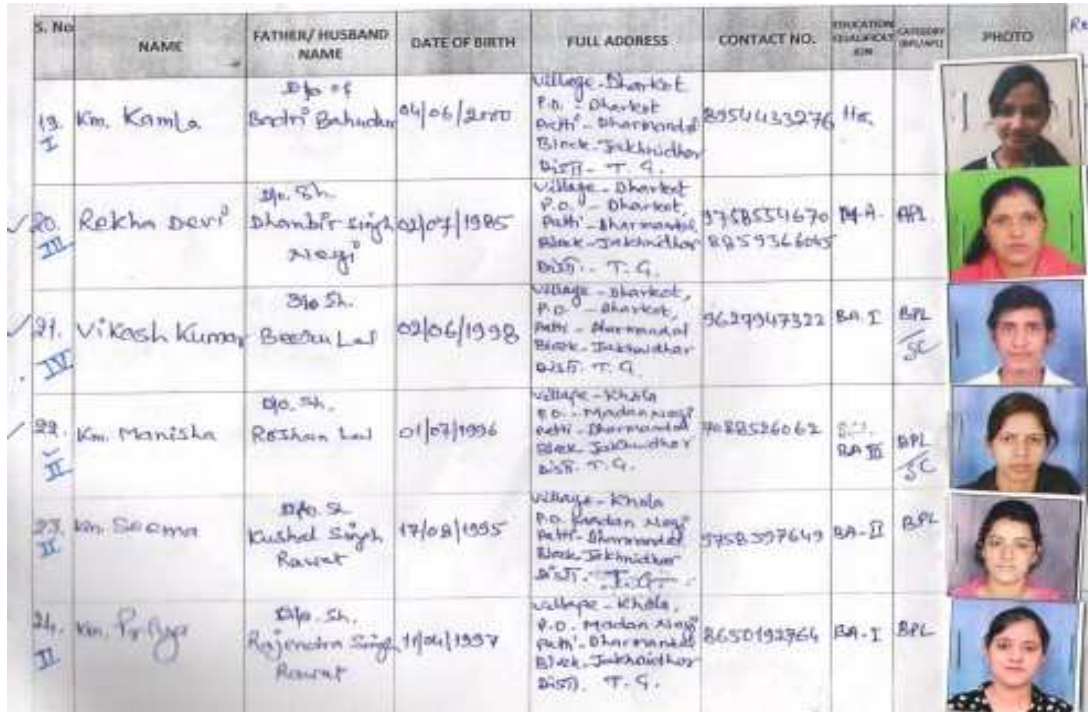 S. No NAME FATHER/ HUSBAND NAME DATE OF BIRTH FULL ADDRESS CONTACT NO. EDUCATION QUALIFICATION CATEGORY (BPL/APL) PHOTO
19. I
Km. Kamla
D/o of
Badri Bahadur
04/06/2000
Village-Dharkot
P.O. - Dharkot
Patti - Dharmandal
Block-Jakhnidhar
Distt- T. G.
8954433276
20. III
Rekha Devi
Sh.
Dhanbir Singh
Negi
02/07/1985
Village - Dharkot
P.O. - Dharkot,
Patti - Dharmandal
Block-Jakhnidhar
Distt- T.G.
9758554670
8859366045
M.A.
APL
21. IV
Vikash Kumar
S/o Sh.
Lal
02/06/1998
Village - Dharkot,
P.O. - Dharkot,
Patti - Dharmandal
Block-Jakhnidhar
Distt. T. G.
9627947322
BA. I
BPL
SC
22. II
Km. Manisha
D/o. Sh.
Roshan Lal
01/07/1996
Village-Khola
P.O. - Madan Negi
Patti - Dharmandal
Block Jakhnidhar
Distt. T. G.
7088526062
BA III
BPL
SC
23. II
Km. Seema
D/o. Sh.
Kushal Singh
Rawat
17/08/1995
Village - Khola
P.O. Madan Negi
Patti-Dharmandal
Block Jakhnidhar
Distt. T.G.
9758597649
BA-II
BPL
24. II
Km. Priya
D/o. Sh.
Rajendra Singh
Rawat
11/04/1997
Village - Khola,
P.O. Madan Negi
Patti-Dharmandal
Block-Jakhnidhar
Distt. T. G.
8650192764
BA-I
BPL